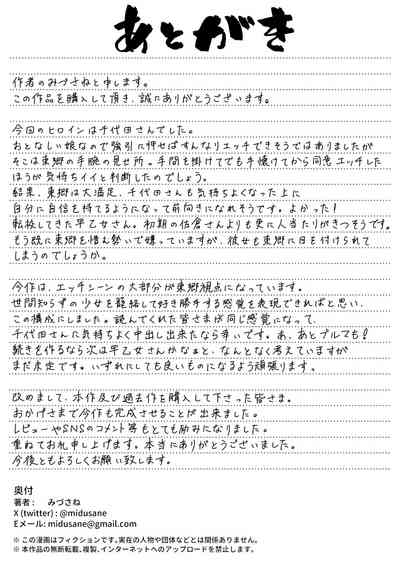 あとがき
作者のみづさねと申します。
この作品を購入して頂き、誠にありがとうございます。
今回のヒロインは千代田さんでした。
おとなしい娘なので強引に押せばすんなりエッチできそうではありましたが
そこは東郷の手腕の見せ所。手間を掛けてでも手懐けてから同意エッチした
ほうが気持ちイイと判断したのでしょう。
結果、東郷は大満足、千代田さんも気持ちよくなった上に
自分に自信を持てるようになって前向きになれそうです。よかった!
転校してきた早乙女さん。初期の佐倉さんよりも更に人当たりがきつそうです。
もう既に東郷を憎ん勢いで嫌っていますが、彼女も東郷に目を付けられて
しまうのでしょうか。
今作は、エッチシーンの大部分が東郷視点になっています。
世間知らずの少女を籠絡して好き勝手する感覚を表現できればと思い、
この構成にしました。読んでくれた皆さまが同じ感覚になって、
千代田さんに気持ちよく中出し出来たなら幸いです。あ、あとブルマも!
続きを作るなら次は早乙女さんかなぁと、なんとなく考えていますが
まだ未定です。いずれにしても良いものになるよう頑張ります。
改めまして、本作及び過去作を購入して下さった皆さま。
おかげさまで今作も完成させることが出来ました。
レビューやSNSのコメント等もとても励みになりました。
重ねてお礼申し上げます。本当にありがとうございました。
今後ともよろしくお願い致します。
奥付
著者: みづさね
X (twitter) : @midusane
Eメール: midusane@gmail.com
※ この漫画はフィクションです。実在の人物や団体などとは関係ありません。
※ 本作品の無断転載、複製、インターネットへのアップロードを禁止します。